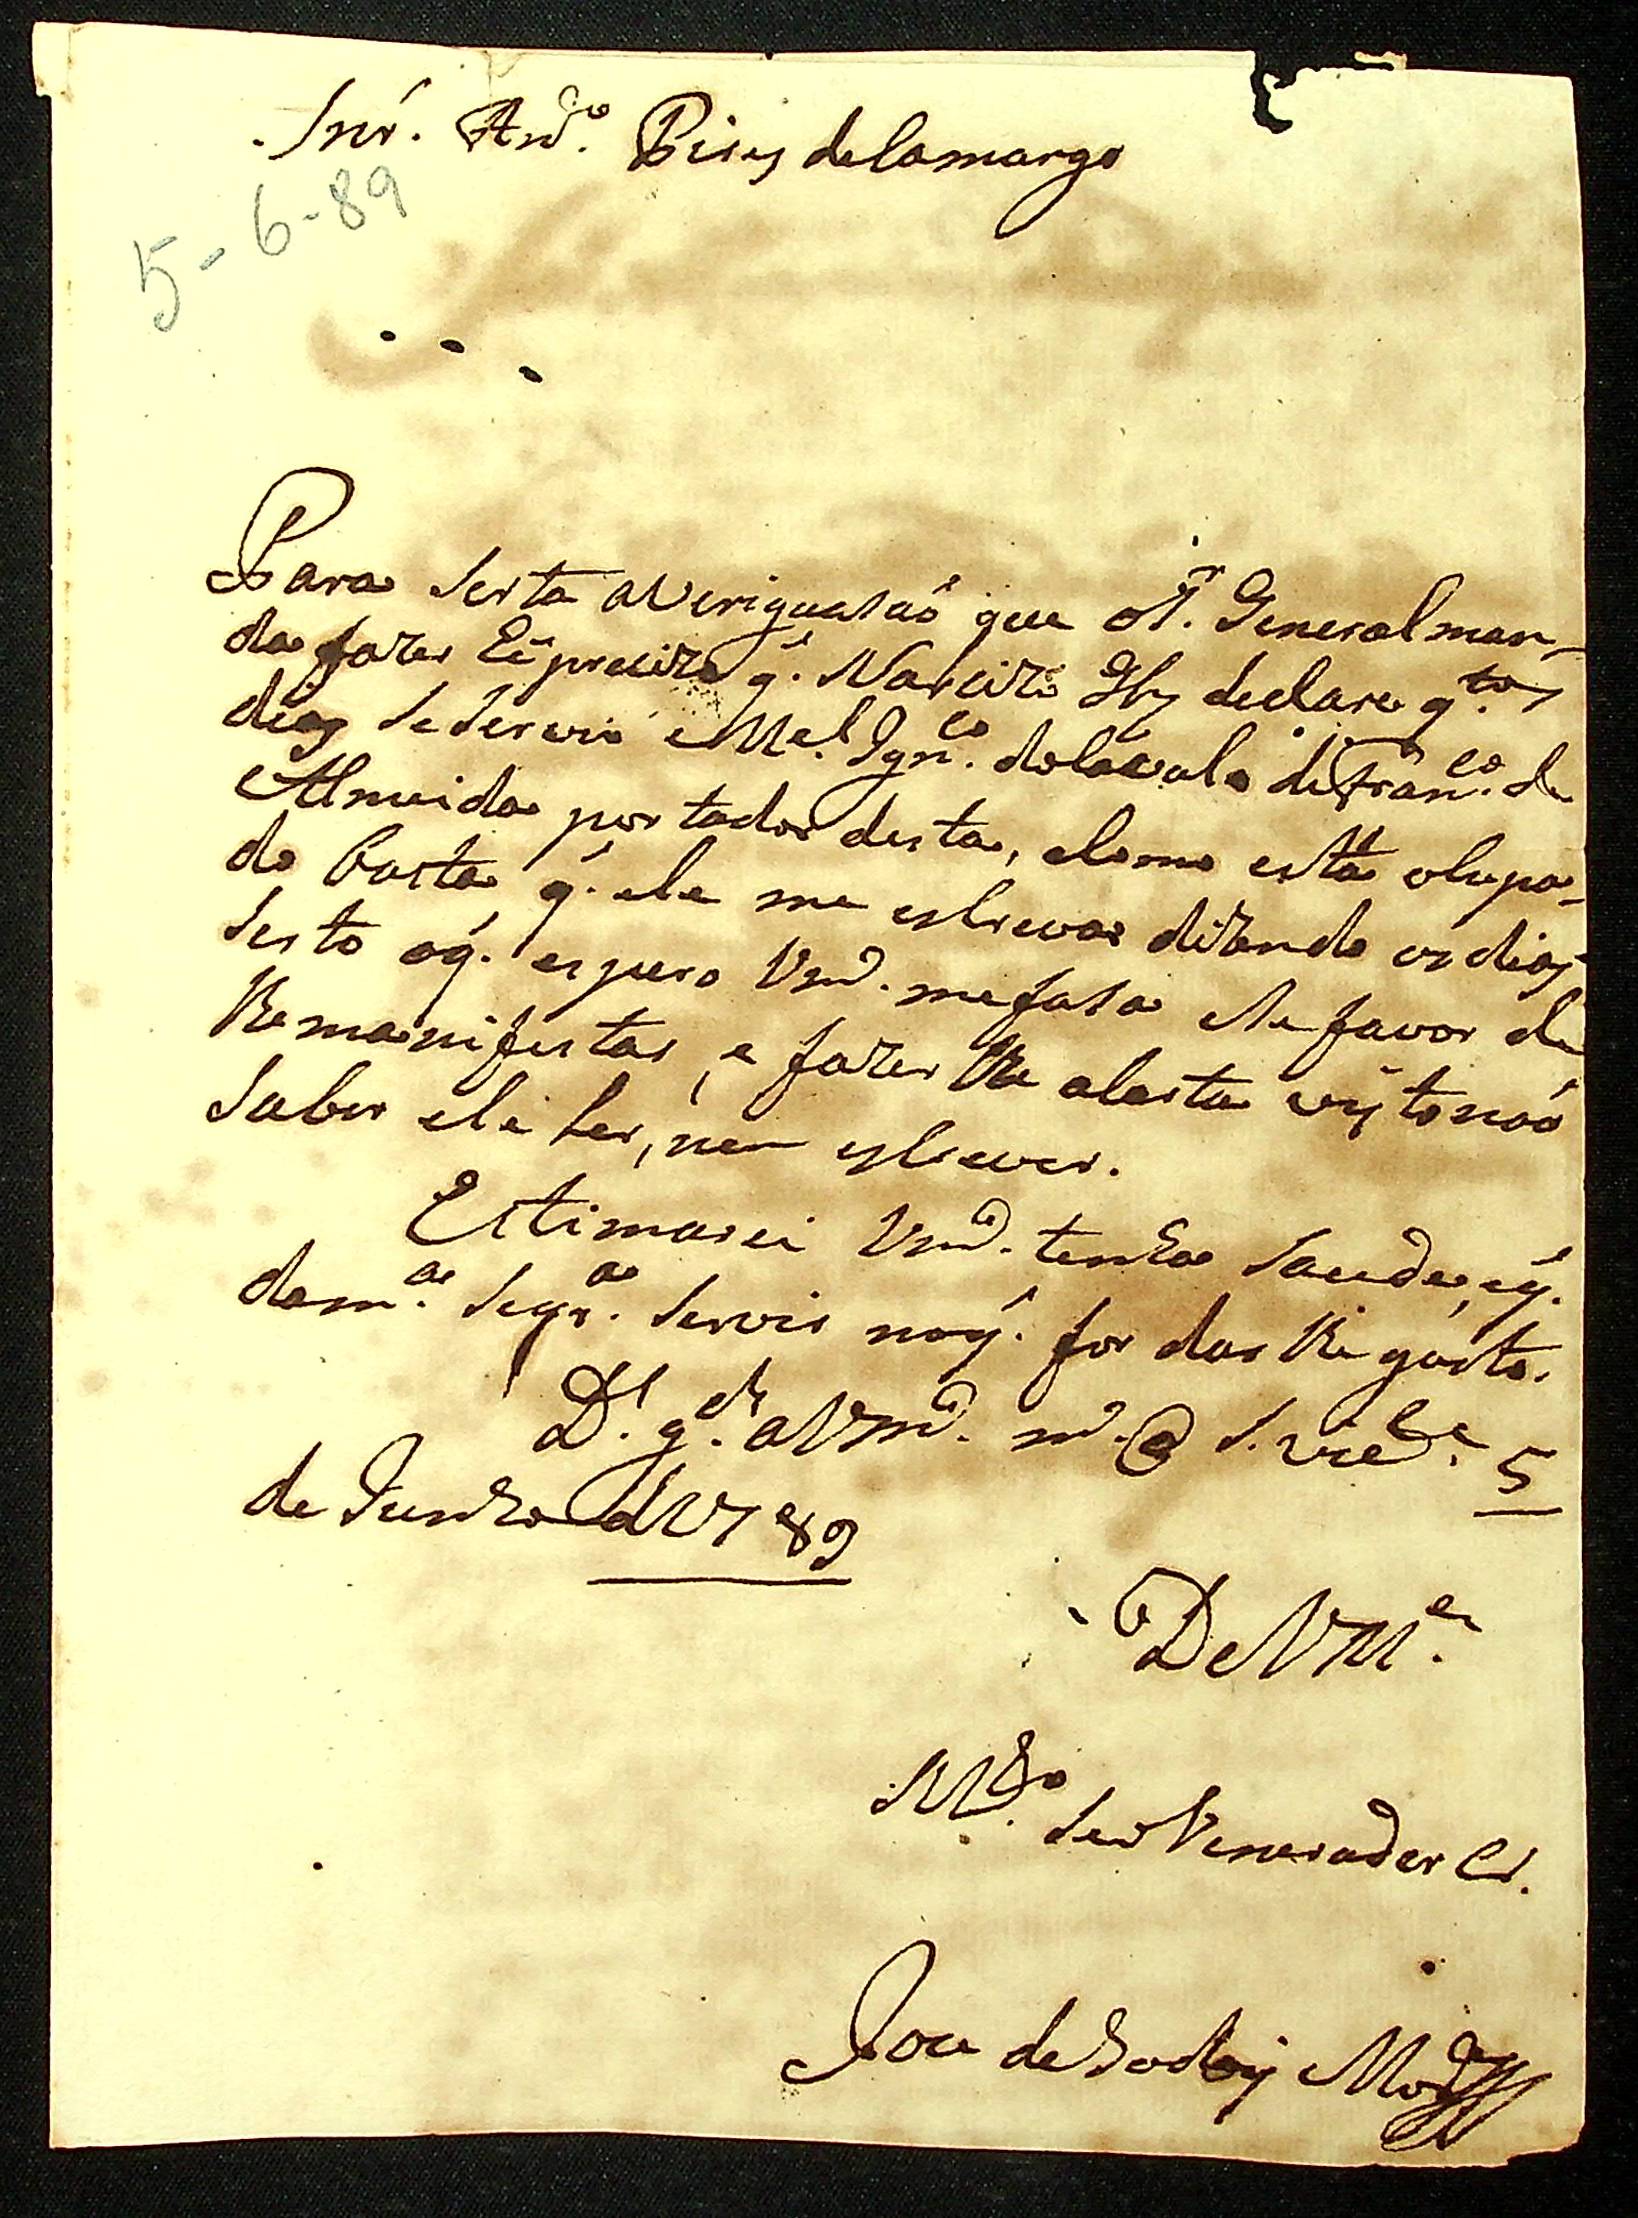 Snr̃. Anto. Pires deCamargo
5-6-89
Para Serta averiguasaõ que oSr. General man-
da fazer hé preciza q'. Narcizo Glz declare q.tos
dias Se Servio eMel. Ign.co doCavalo de Fran.co de
Almeida portador desta, elomo está olupa-
do basta q'. ele me escreva dizendo os dias
Serto oq'. espero Vmce. mefasa ele favor de
lhe manifestar, e fazer lhe a Carta visto naõ
Saber ele ler, nem escrever.
Estimarei Vmce. tenha Saude, eq'.
dam.a Segr.a Servir noq'. for dar lhe gosto.
Ds. gde. aVmce. ms. as. S. Joze 5
de Junho d1789
DeVMce.
Mto. Seu Venerador Cr.
Joze deGodoy Mor.a